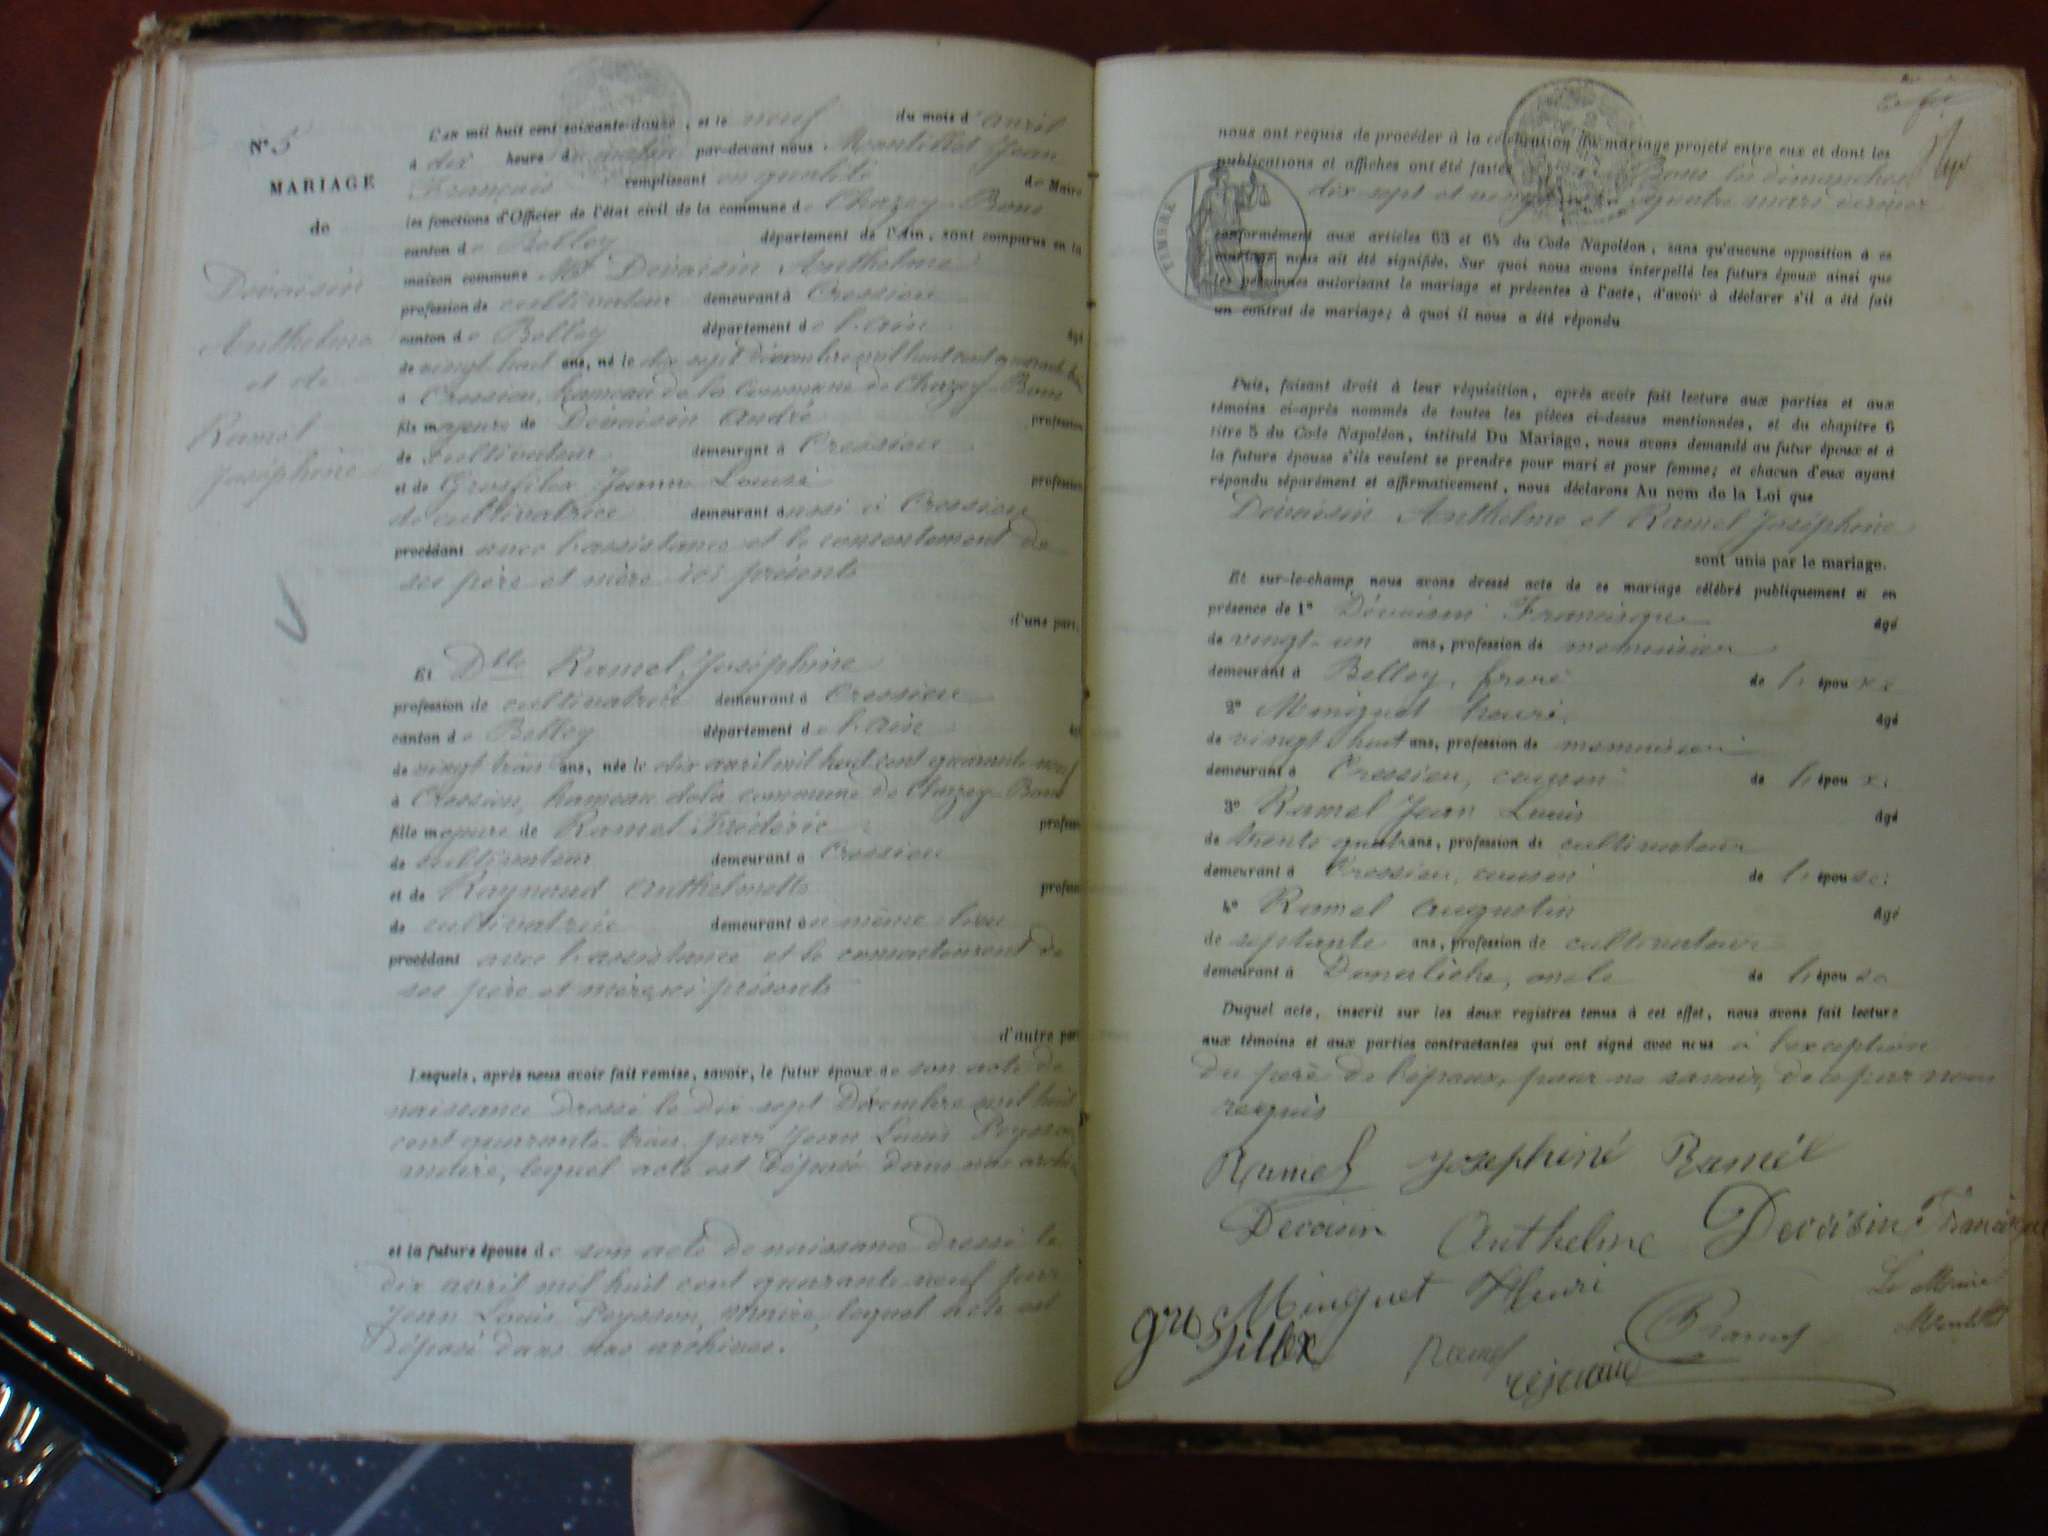 N° 5
MARIAGE
de
Dévaisin
Anthelme
et de
Ramel
Joséphine
L'an mil huit cent soixante-douze, et le neuf du mois d'avril
à dix heures du matin par-devant nous Montillet Jean
François remplissant en qualité de Maire
les fonctions d'Officier de l'état civil de la commune de Chazey-Bons
canton de Belley département de l'Ain, sont comparus en la
maison commune Mr Dévaisin Anthelme
profession de cultivateur demeurant à Cressieu
canton de Belley département de l'ain âgé
de vingt huit ans, né le dix sept décembre mil huit cent quarante trois
à Cressieu, hameau de la commune de Chazey-Bons
fils majeur de Dévaisin André profession
de cultivateur demeurant à Cressieu
et de Grosfilex Jeanne Louise profession
de cultivatrice demeurant aussi à Cressieu
procédant avec l'assistance et le consentement de
ses père et mère ici présents
d'une part.
Et Dlle Ramel, Joséphine
profession de cultivatrice demeurant à Cressieu
canton de Belley département de l'ain
de vingt trois ans, née le dix avril mil huit cent quarante neuf
à Cressieu, hameau de la commune de Chazey-Bons
fille majeure de Ramel Frédéric profess
de cultivateur demeurant à Cressieu
et de Raynaud Anthelmette profess
de cultivatrice demeurant au même lieu
procédant avec l'assistance et le consentement de
ses père et mère ici présents
d'autre par
Lesquels, après nous avoir fait remise, savoir, le futur époux de son acte de
naissance dressé le dix sept Décembre mil huit
cent quarante-trois par Jean Louis Peysson
maire, lequel acte est déposé dans nos archi
et la future épouse de son acte de naissance dressé le
dix avril mil huit cent quarante neuf par
Jean Louis Peysson, maire, lequel acte est
déposé dans nos archives.
nous ont requis de procéder à la célébration du mariage projeté entre eux et dont les
publications et affiches ont été faites Bons les dimanches
dix sept et vingt quatre mars dernier
TIMBRE
conformément aux articles 63 et 64 du Code Napoléon, sans qu'aucune opposition à ce
mariage nous ait été signifiée. Sur quoi nous avons interpellé les futurs époux ainsi que
les personnes autorisant le mariage et présentes à l'acte, d'avoir à déclarer s'il a été fait
un contrat de mariage; à quoi il nous a été répondu
Puis, faisant droit à leur réquisition, après avoir fait lecture aux parties et aux
témoins ci-après nommés de toutes les pièces ci-dessus mentionnées, et du chapitre 6
titre 5 du Code Napoléon, intitulé Du Mariage, nous avons demandé au futur époux et à
la future épouse s'ils veulent se prendre pour mari et pour femme; et chacun d'eux ayant
répondu séparément et affirmativement, nous déclarons Au nom de la Loi que
Dévaisin Anthelme et Ramel Joséphine
sont unis par le mariage.
Et sur-le-champ nous avons dressé acte de ce mariage célébré publiquement et en
présence de 1° Dévaisin Francisque âgé
de vingt-un ans, profession de menuisier
demeurant à Belley, frère de l'époux
2° Minguet henri âgé
de vingt huit ans, profession de menuisier
demeurant à Cressieu, cousin de l'époux
3° Ramel Jean Louis âgé
de trente quatre ans, profession de cultivateur
demeurant à Cressieu, cousin de l'épouse
4° Ramel Augustin âgé
de septante ans, profession de cultivateur
demeurant à oncle de l'épouse
Duquel acte, inscrit sur les deux registres tenus à cet effet, nous avons fait lecture
aux témoins et aux parties contractantes qui ont signé avec nous à l'exception
du père de l'époux, pour ne savoir, de ce par nous
requis
Ramel Josephine Ramél
Devaisin Anthelme Devaisin Francisque
Minguet Henri Le Maire
gros fillex Ramel Ramel Montillet